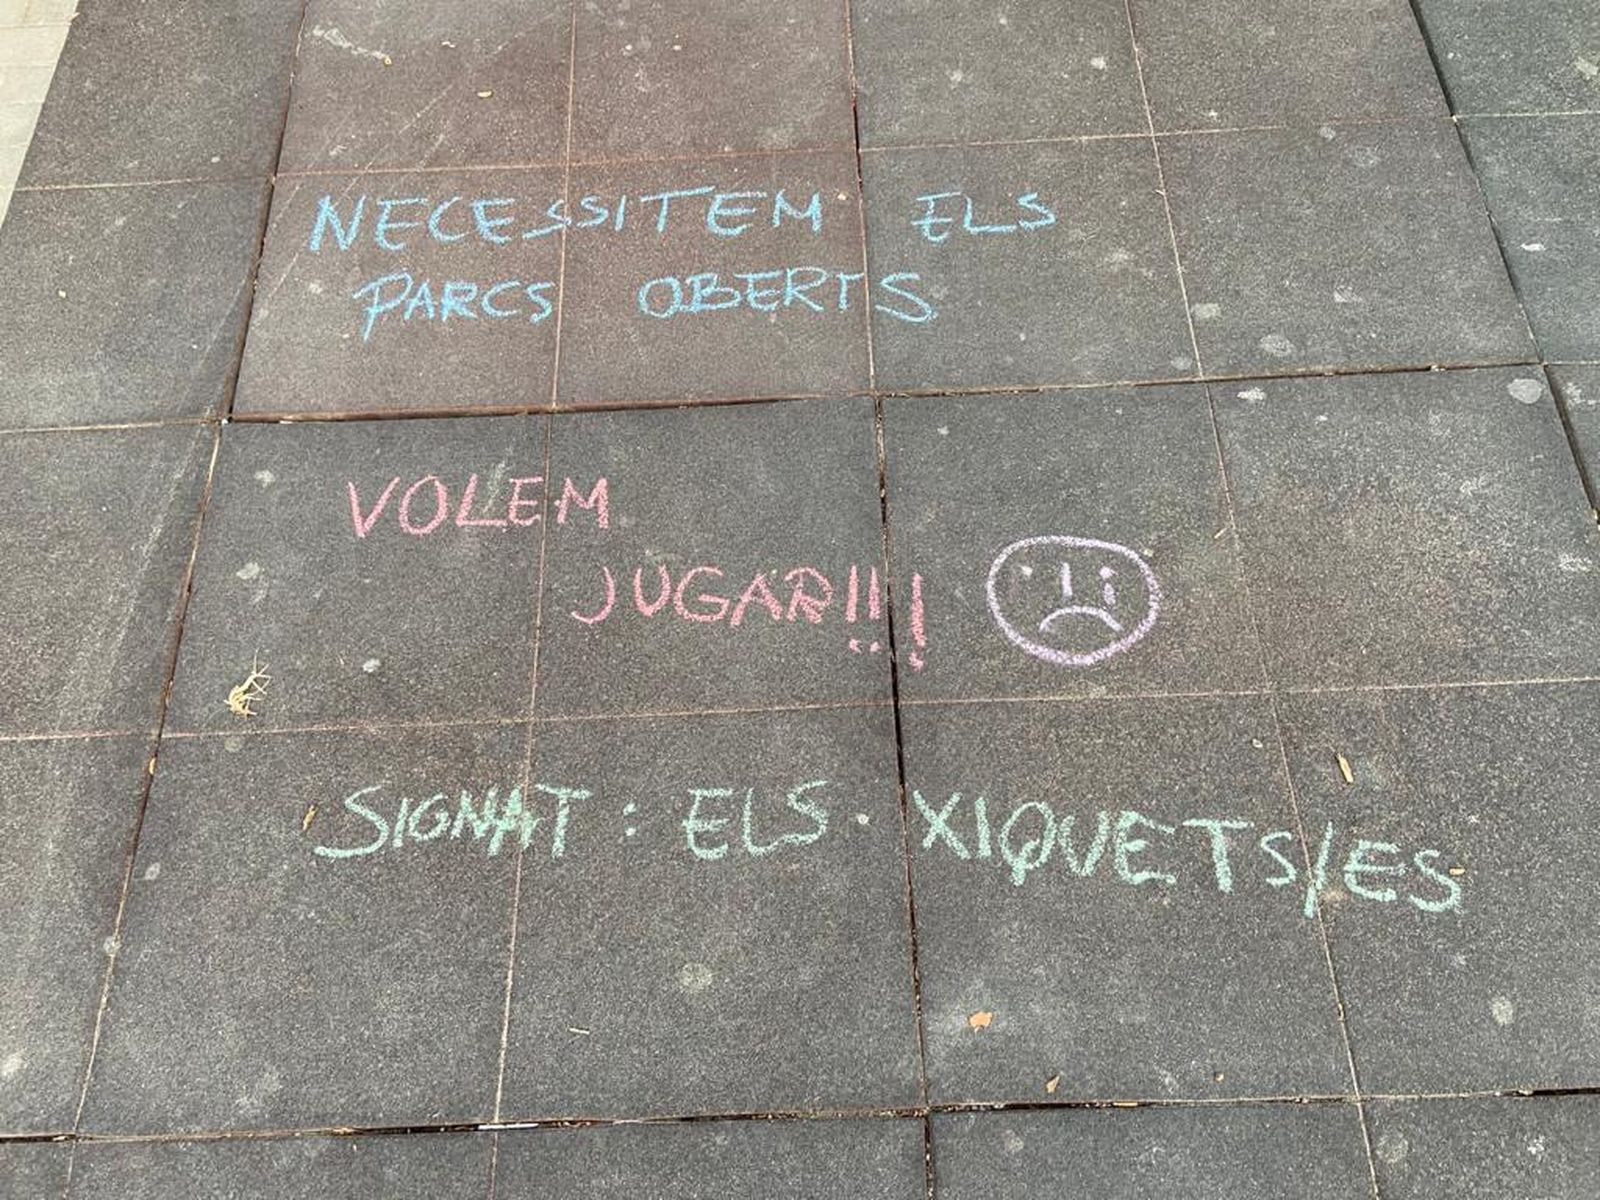 NECESSITEM ELS
PARCS OBERTS
VOLEM
JUGAR!!!
SIGNAT: ELS XIQUETS/ES